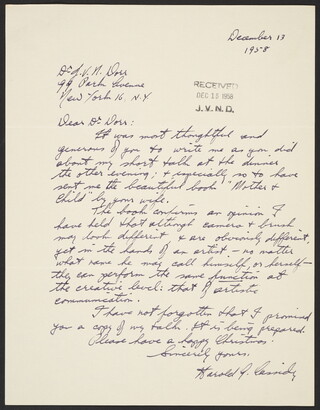 December 13
1958
Dr J. V. N. Dorr
99 Park Avenue
New York 16, N.Y.
RECEIVED
DEC 15 1958
J. V. N. D.
Dear Dr Dorr:
It was most thoughtful and
generous of you to write me as you did
about my short talk at the dinner
the other evening; & especially so to have
sent me the beautiful book "Mother &
Child" by your wife.
The book confirms an opinion I
have held that although camera & brush
may look different, & are obviously different,
yet in the hands of an artist – no matter
what name he may call himself, or herself –
they can perform the same function at
the creative level: that of artistic
communication.
I have not forgotten that I promised
you a copy of my talk. It is being prepared.
Please have a happy Christmas.
Sincerely yours,
Harold G. Cassidy